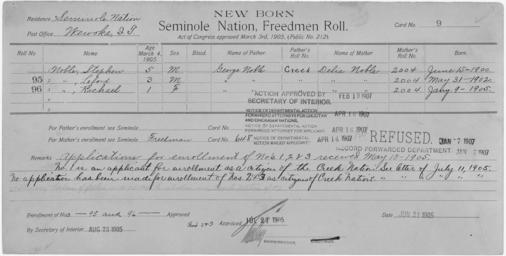 NEW BORN
Residence, Seminole Nation
Seminole Nation, Freedmen Roll.
Card No. 9
Post Office, Wewoka, I.T.
Act of Congress approved March 3rd, 1903, (Public No. 212).
Roll No. Name Age March 4, 1905 Sex Blood. Name of Father Father's Roll No. Name of Mother Mother's Roll No. Born.
Nobles, Stephen 5 M George Noble Creek Delia Nobles 2004 June 15-1900
95 " " 3 M " " " " 2004 May 31-1902
96 " " Rachael 1 F " " " " 2004 Jany. 9-1905.
ACTION APPROVED BY
SECRETARY OF INTERIOR.
FEB 19 1907
NOTICE OF DEPARTMENTAL ACTION
FORWARDED ATTORNEYS FOR CHOCTAW
AND CHICKASAW NATIONS.
APR 16 1907
NOTICE OF DEPARTMENTAL ACTION
FORWARDED ATTORNEY FOR APPLICANT.
APR 16 1907
For Father's enrollment see Seminole Card No.
For Mother's enrollment see Seminole Freedman Card No. 645
NOTICE OF DEPARTMENTAL ACTION
MAILED APPLICANT.
APR 16 1907
REFUSED.
RECORD FORWARDED DEPARTMENT.
Remarks Applications for enrollment of Nos 1, 2 & 3 received May 10-1905.
No 1 is an applicant for enrollment as a citizen of the Creek Nation. See letter of July 11, 1905.
No application has been made for enrollment of Nos. 2 & 3 as citizens of Creek Nation. " " " " "
Enrollment of Nos. 95 and 96 Approved
By Secretary of Interior, AUG 23 1905
Nos 2 & 3 Approved JUL 21 1905
Date JUN 21 1905